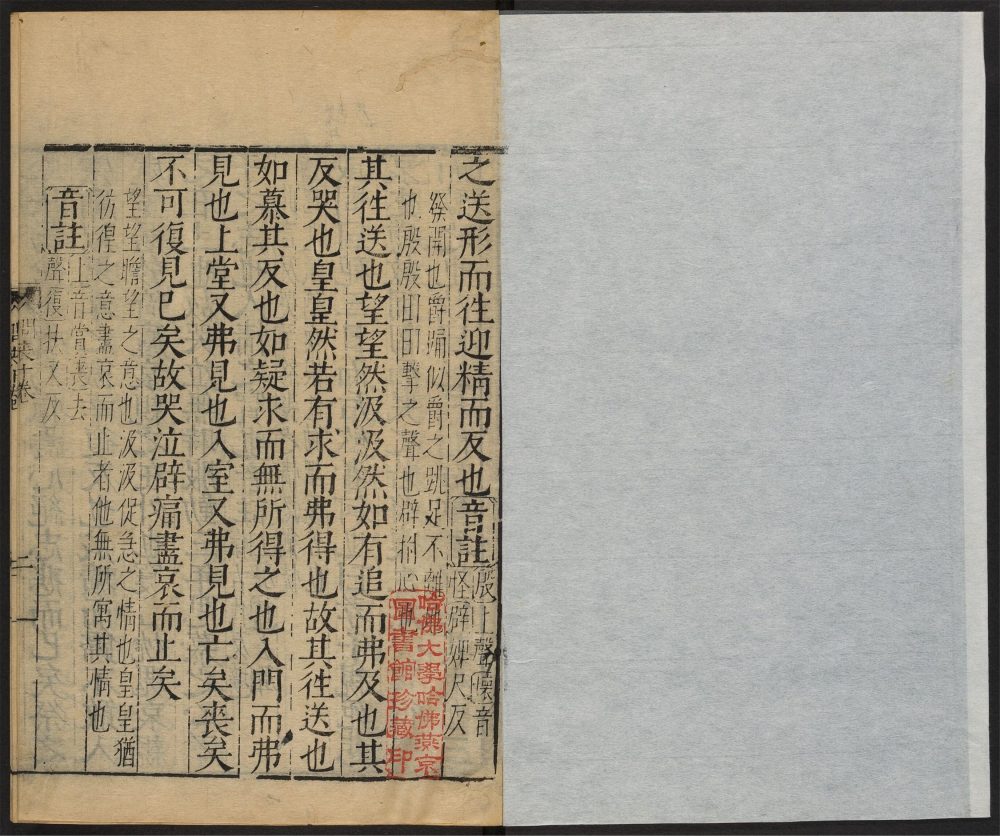 之送形而徃迎精而反也音註殷上聲壞音
怪辟婢尺反
發開也爵踊似爵之跳足不離地
也殷殷田田擊之聲也辟拊心也
其徃送也望望然汲汲然如有追而弗及也其
反哭也皇皇然若有求而弗得也故其徃送也
如慕其反也如疑求而無所得之也入門而弗
見也上堂又弗見也入室又弗見也亡矣喪矣
不可復見已矣故哭泣辟痛盡哀而止矣
望望瞻望之意也汲汲促急之情也皇皇猶
彷徨之意盡哀而止者他無所寓其情也
音註上音賞喪去
聲復扶又反
問喪十卷
二
哈佛大學哈佛燕京
圖書館珍藏印